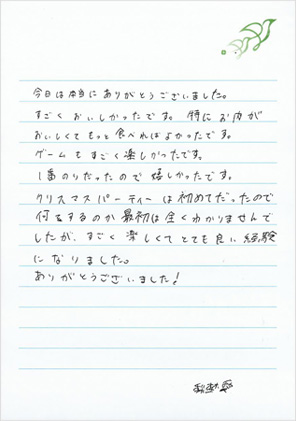 今日は本当にありがとうございました。
すごくおいしかったです。特にお肉が
おいしくてもっと食べればよかったです。
ゲームもすごく楽しかったです。
1番のりだったので嬉しかったです。
クリスマスパーティーは初めてだったので
何をするのか最初は全くわかりませんで
したが、すごく楽しくてとても良い経験
になりました。
ありがとうございました！